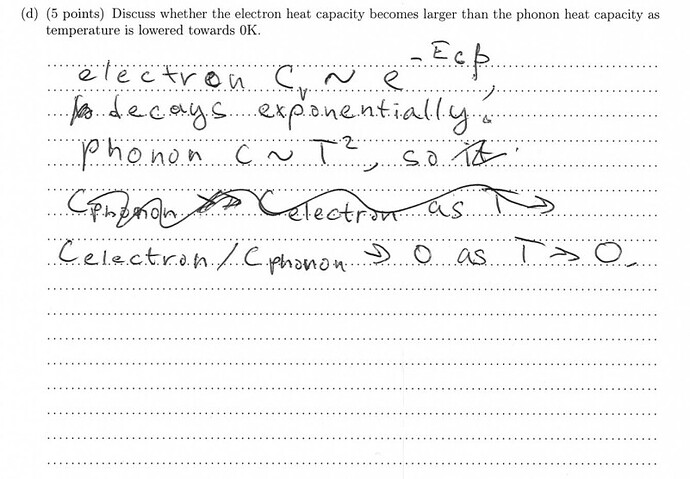 (d) (5 points) Discuss whether the electron heat capacity becomes larger than the phonon heat capacity as
temperature is lowered towards 0K.
electron Cv ~ e^-Ecβ,
decays exponentially.
phonon C ~ T², so
Cphonon Celectron as T→
Celectron/Cphonon → 0 as T → 0.